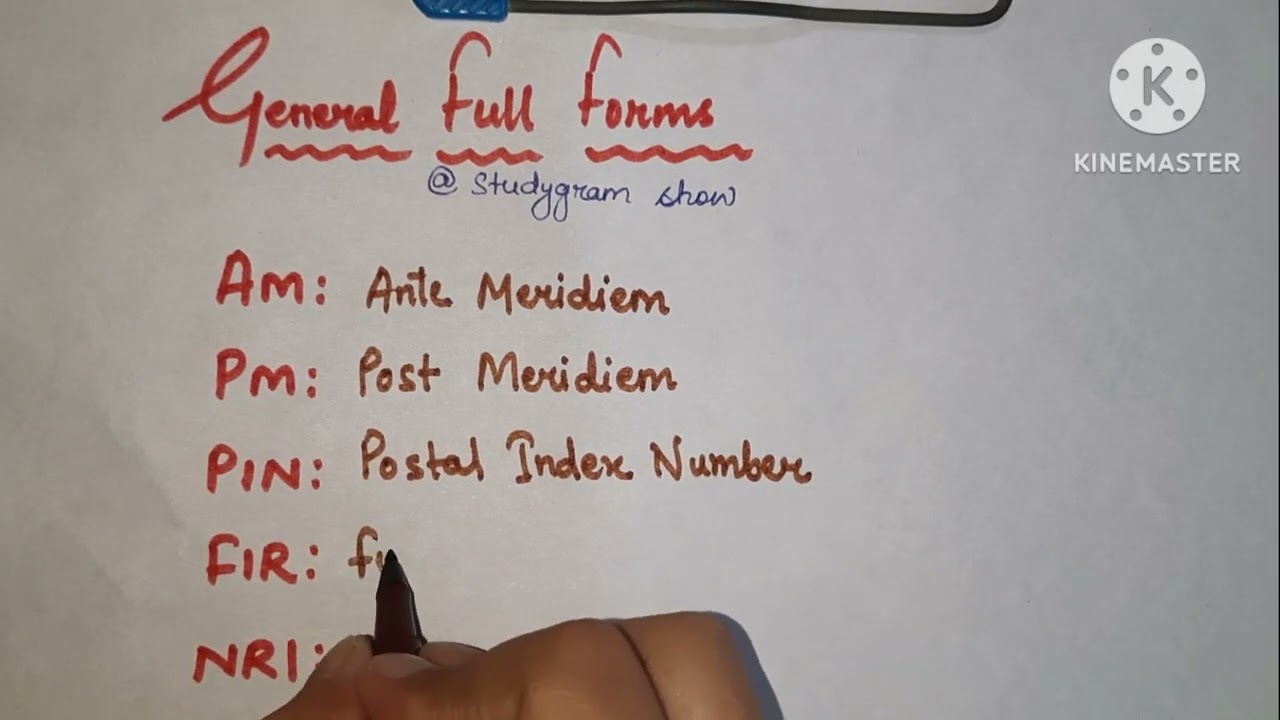 General Full Forms
@ Studygram show
KINEMASTER
AM: Ante Meridiem
PM: Post Meridiem
PIN: Postal Index Number
FIR:
NRI: